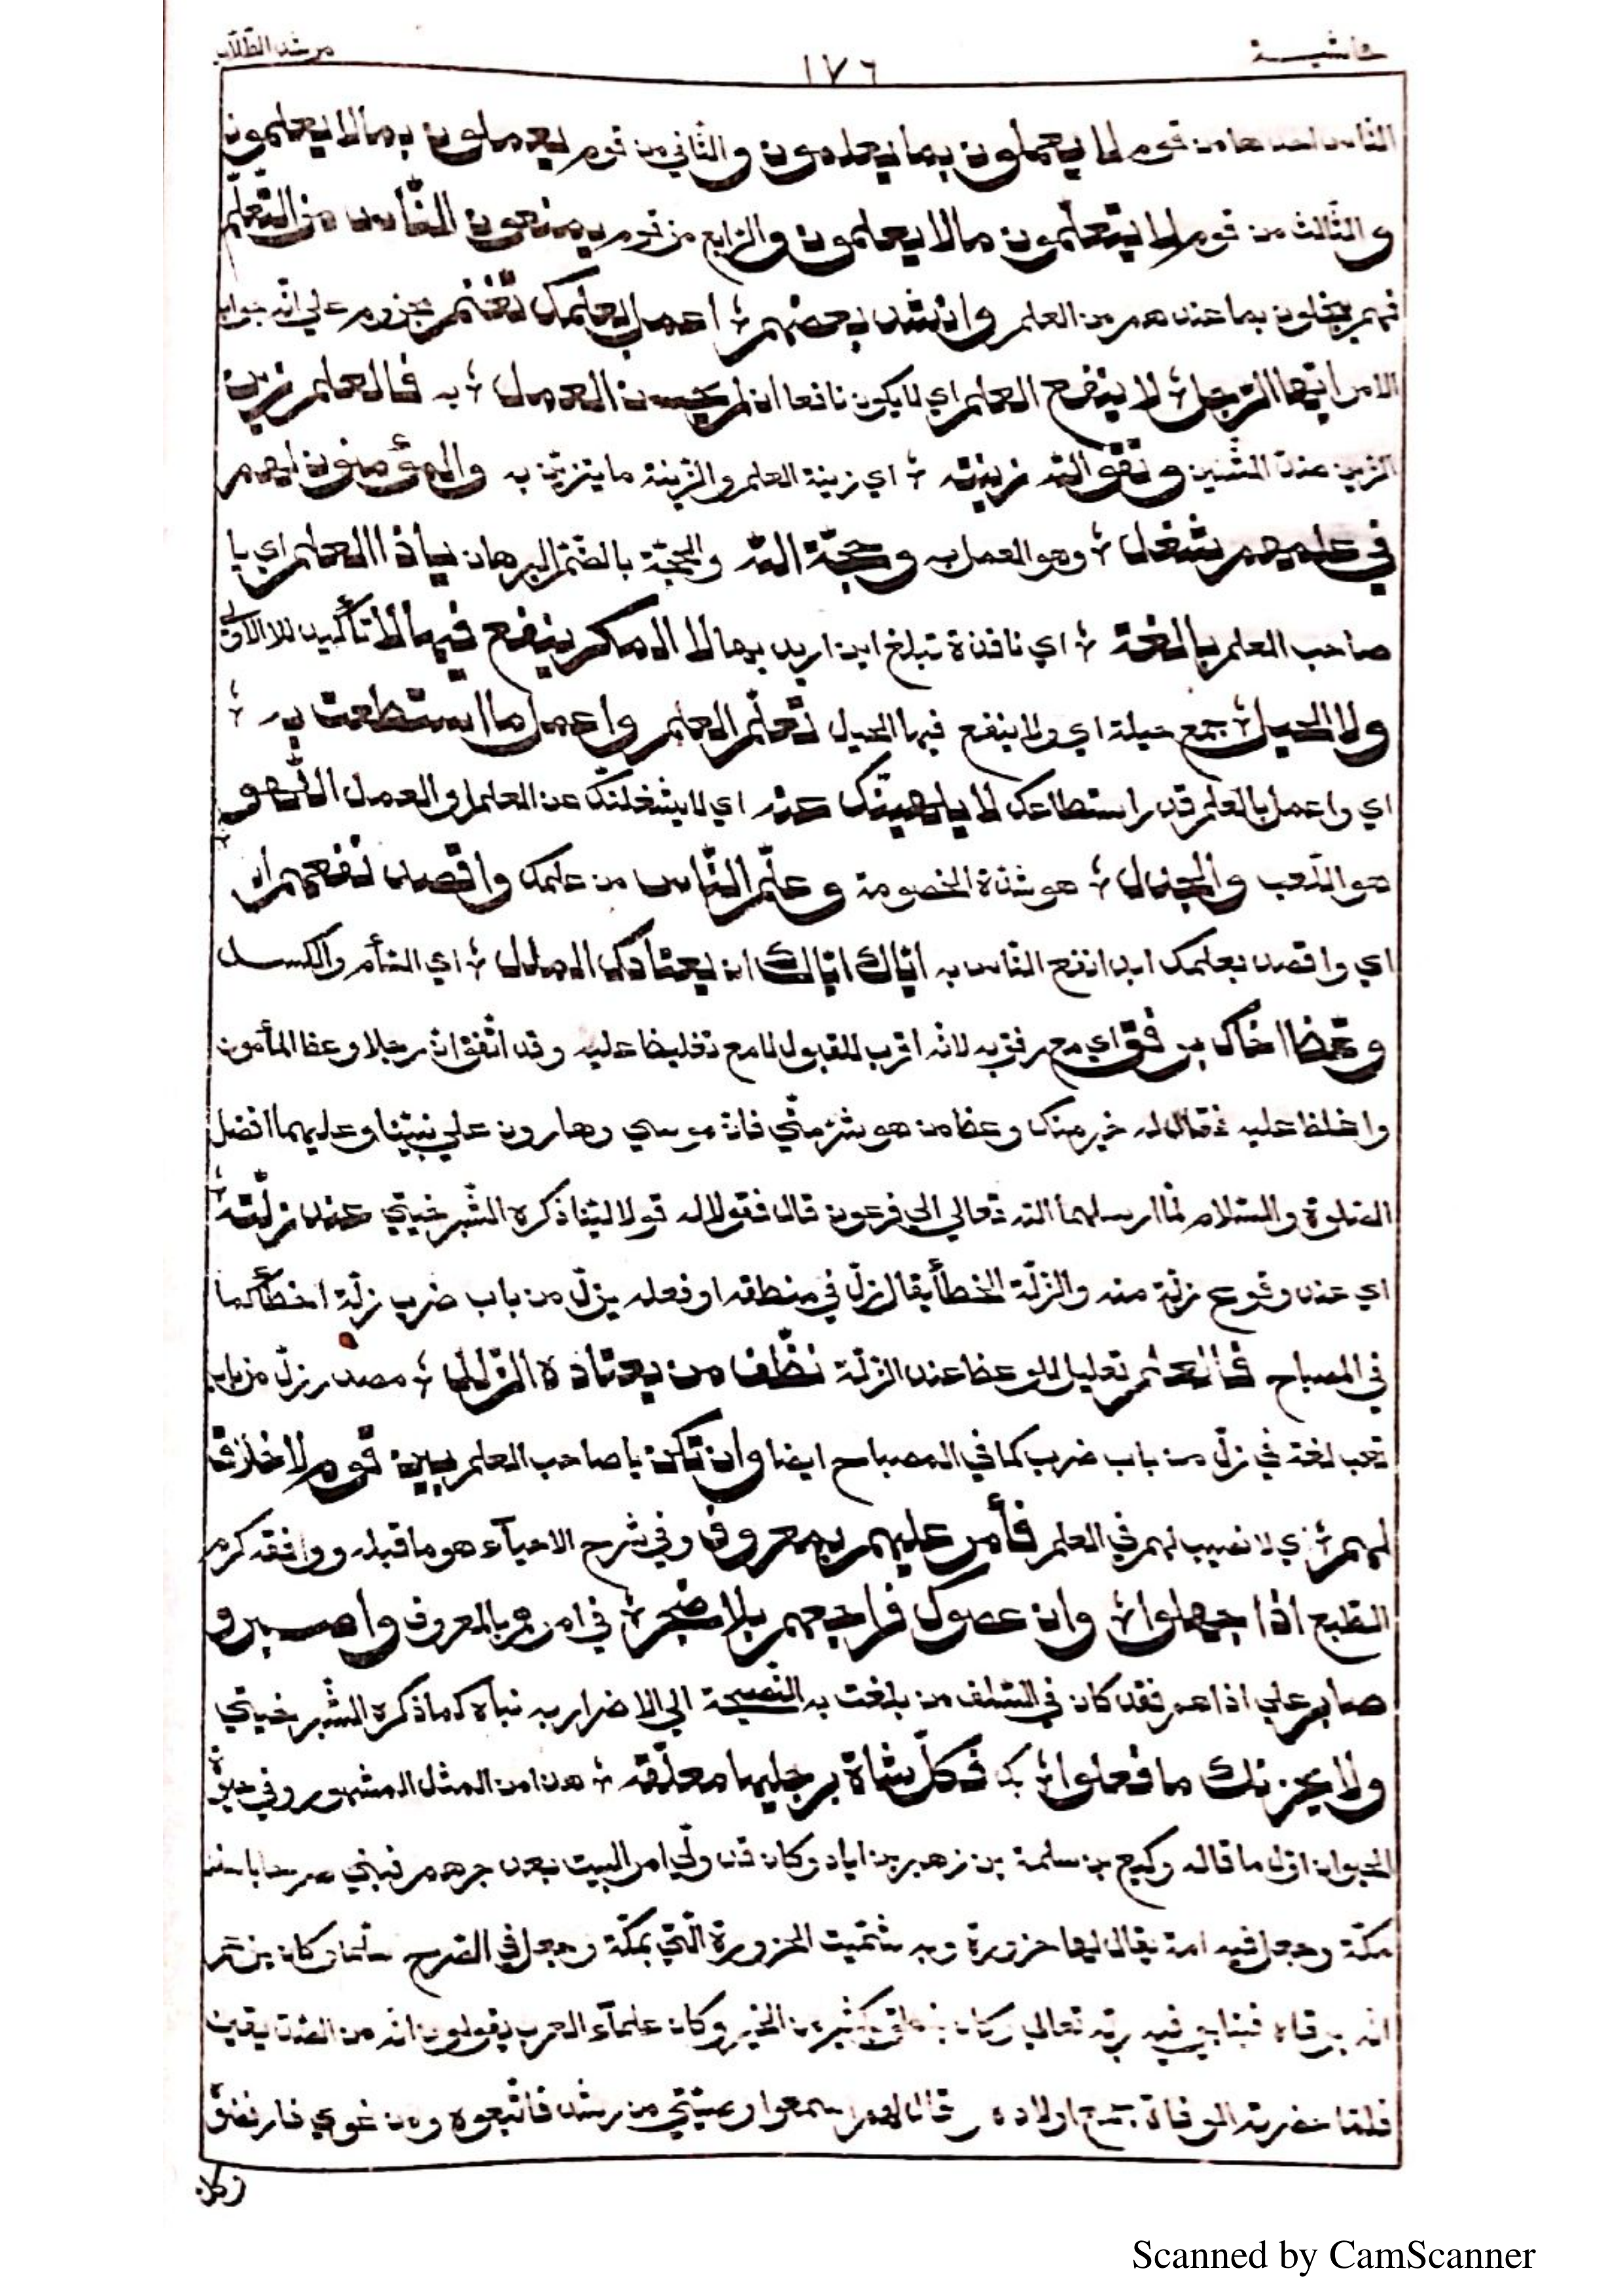 حاشية
١٧٦
مرشد الطلاب
الناس احدها من قوم لا يعملون بما يعلمون والثاني من قوم يعملون بما لا يعلمون
والثالث من قوم لا يتعلمون ما لا يعلمون والرابع من قوم يمنعون الناس من التعلم
فهم يبخلون بما عندهم من العلم وانشد بعضهم ؛ اعمل بعلمك تغنم مجزوم على انه جواب
الامر ايها الرجل ؛ لا ينفع العلم اي لا يكون نافعا ان لم يحسن العمل ؛ به فالعلم زين
الزين عند الشين وتقو الله زينته ؛ اي زينة العلم والزينة ما يتزين به والمؤمنون لهم
في علمهم شغل ؛ وهو العمل به وحجة الله والحجة بالضم البرهان يا ذا العلم اي يا
صاحب العلم بالغة ؛ اي نافذة تبلغ اين اريد بها لا المكر ينفع فيها لا تأكيد للا الاولى
ولا الحيل ؛ جمع حيلة اي ولا ينفع فيها الحيل تعلم العلم واعمل ما استطعت به ؛
اي واعمل بالعلم قدر استطاعك لا يلهينك عنه اي لا يشغلنك عن العلم او العمل اللهو
هو اللعب والجدل ؛ هو شدة الخصومة وعلم الناس من علمك واقصد نفعهم ابد
اي واقصد بعلمك ابد انفع الناس به اياك اياك ان يعتادك الملل ؛ اي السأم والكسل
وعظ اخاك برفق اي مع رفق به لانه اقرب للقبول لا مع تغليظ عليه وقد اتفق ان رجلا وعظ المأمون
واغلظ عليه فقال له خير منك وعظ من هو شر مني فان موسى وهارون على نبينا وعليهما افضل
الصلوة والسلام لما ارسلهما الله تعالى الى فرعون قال فقولا له قولا لينا ذكره الشبرخيتي عند زلته ؛
اي عند وقوع زلة منه والزلة الخطأ يقال زل في منطقه او فعله يزل من باب ضرب زلة اخطأ كما
في المصباح فالعلم تعليل للوعظ عند الزلة نظف من يعتاده الزلل ؛ مصدر زل من باب
تعب لغة في زل من باب ضرب كما في المصباح ايضا وان تكن يا صاحب العلم بين قوم لا خلاق
لهم ؛ اي لا نصيب لهم في العلم فأمر عليهم بمعروف وفي شرح الاحياء هو ما قبله ووافقه كرم
الطبع اذا جهلوا ؛ وان عصوك فراجعهم بلا ضجر ؛ في امرهم بالمعروف واصبر و
صابر على اذاهم فقد كان في السلف من بلغت به النصيحة الى الاضرار به نباه كما ذكره الشبرخيتي
ولا يحزنك ما فعلوا ؛ بك فكل شاة برجليها معلقة ؛ هذا من المثل المشهور وفي حيوة
الحيوان اول ما قاله وكيع بن سلمة بن زهير بن اياد وكان قد ولي امر البيت بعد جرهم فبنى صرحا باسفل
مكة وجعل فيه امة يقال لها حزورة وبه سميت الحزورة التي بمكة وجعل في الصرح سلما وكان يزعم
انه يرقاه فيناجي فيه ربه تعالى وكان ينطق بكثير من الخير وكان علماء العرب يقولون انه من الصديقين
فلما حضرته الوفاة جمع اولاده وقال لهم اسمعوا وصيتي من رشد فاتبعوه ومن غوي فارفضوه
وكل
Scanned by CamScanner